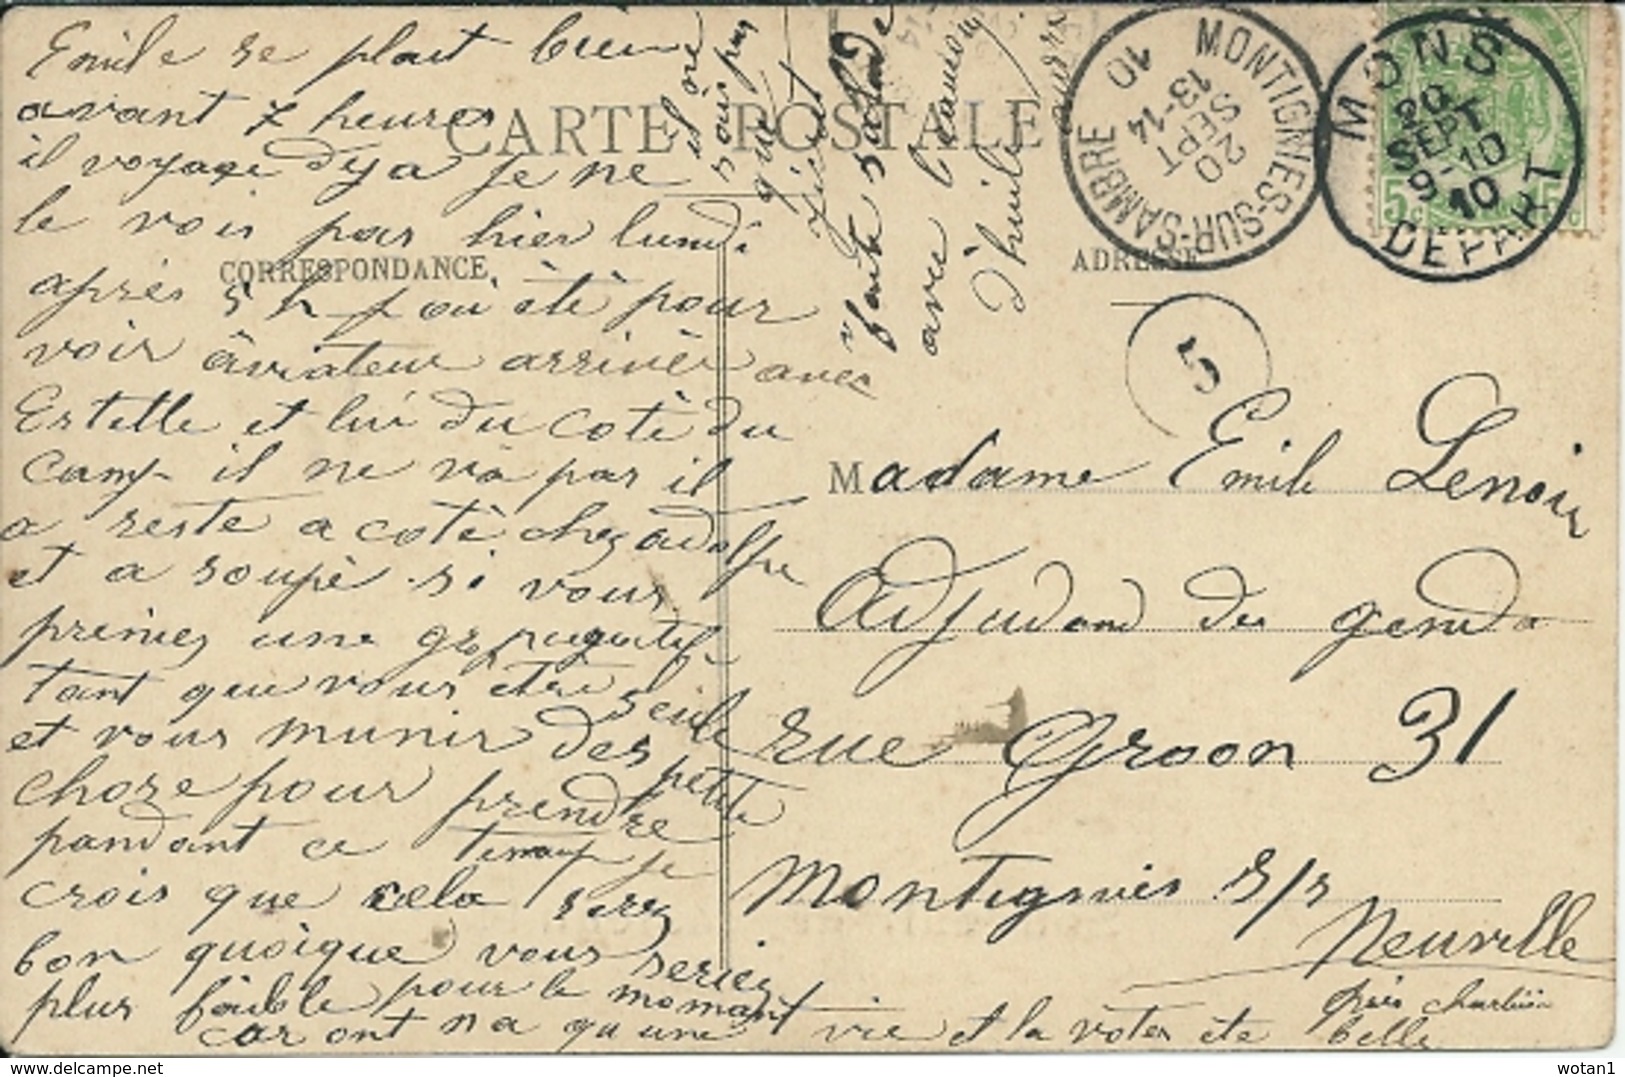 CARTE POSTALE
CORRESPONDANCE
ADRESSE
Emile se plait bien
avant 7 heures
il voyage deja je ne
le vois pas hier lundi
après 5 h j ou été pour
voir âviateur arrivèr avec
Estelle et lui du coté du
camp il ne và pas il
a reste a coté chez adolphe
et a soupé si vous
preniez une
tant que vous etre seule
et vous munir des petite
chose pour prendre
pandant ce temp je
crois que cela serez
bon quoique vous seriez
plus foible pour le momant
car ont n a qu une vie et la votre ete belle
Madame Emile Lenoir
Adjudand du genda
rue Groon 31
Montignies s/s
Neuville
près
il ore
sous pas
que
vient
faite salade
avec
d'huile
MONTIGNIES-SUR-SAMBRE
20
SEPT
13-14
10
MONS
20
SEPT
9-10
10
DEPART
5
5c
wotan1